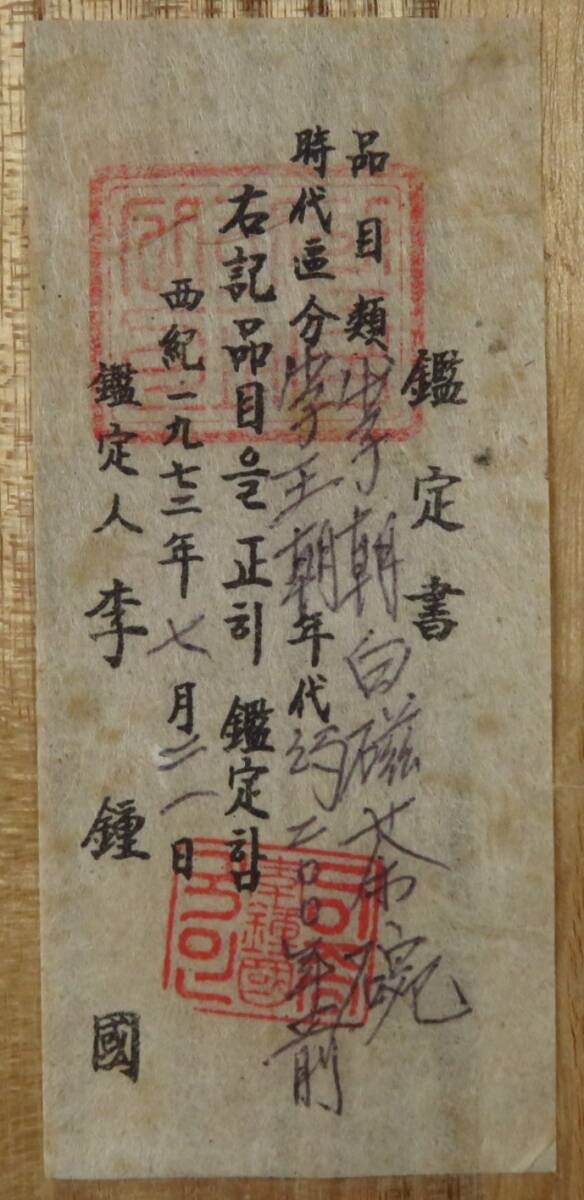 鑑定書
品目類 李朝白磁茶碗
時代區分 李王朝年代 約二〇〇年前
右記品目을 正히 鑑定함
西紀一九七二年 七月 二一日
鑑定人 李鍾國
李鍾國